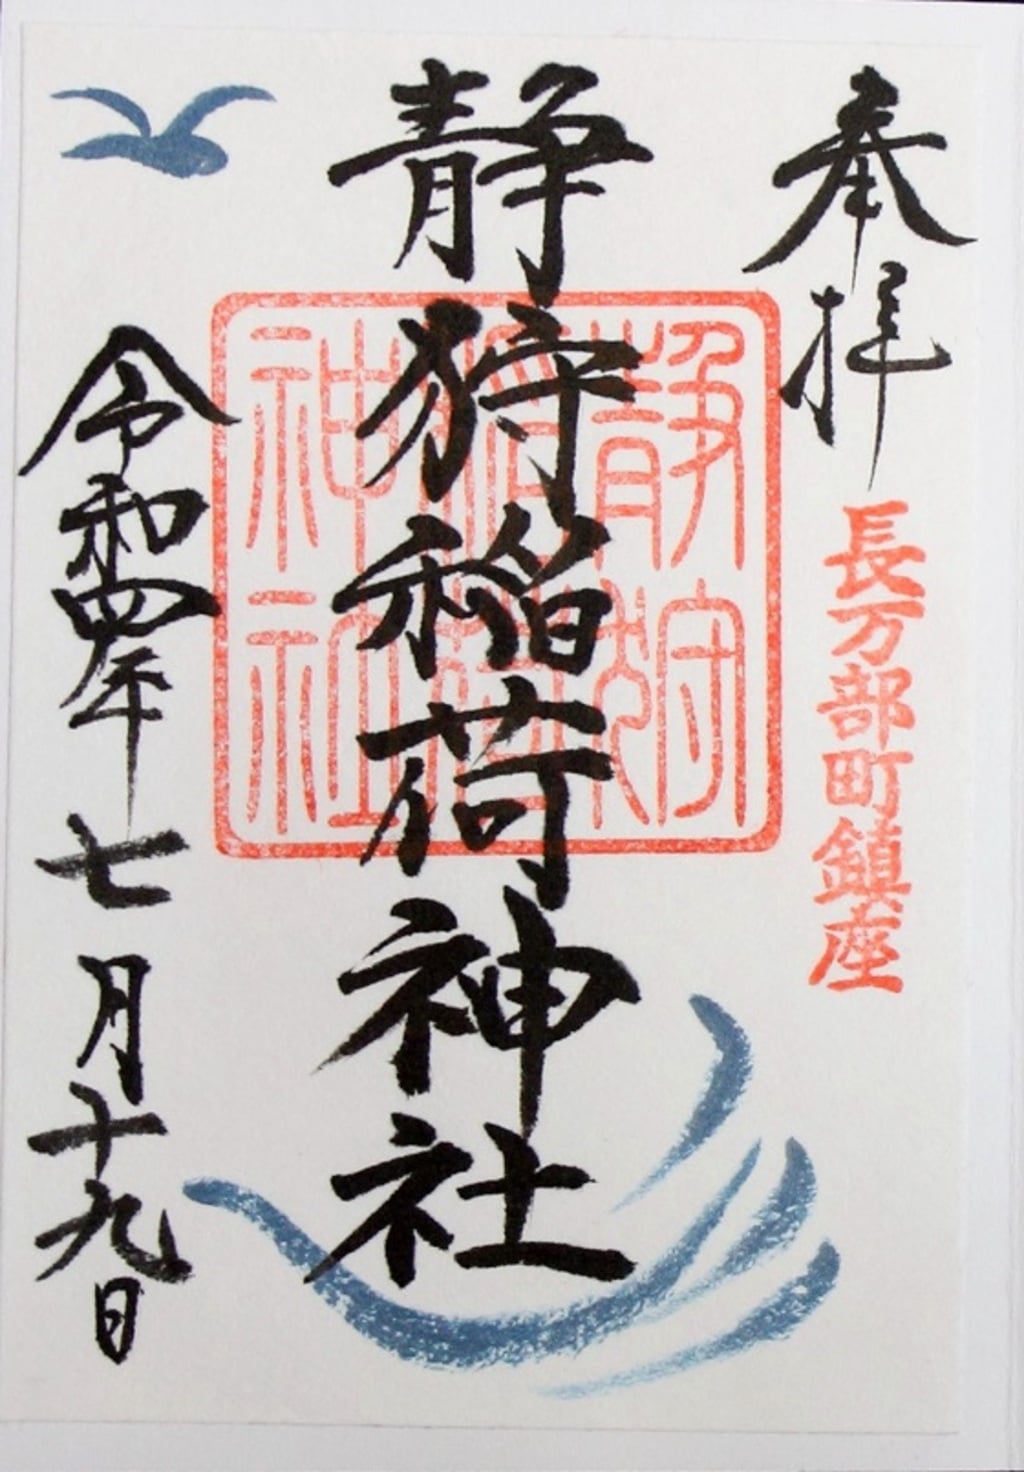 奉拝
長万部町鎮座
静狩稲荷神社
静狩
稲荷
神社
令和四年七月十九日